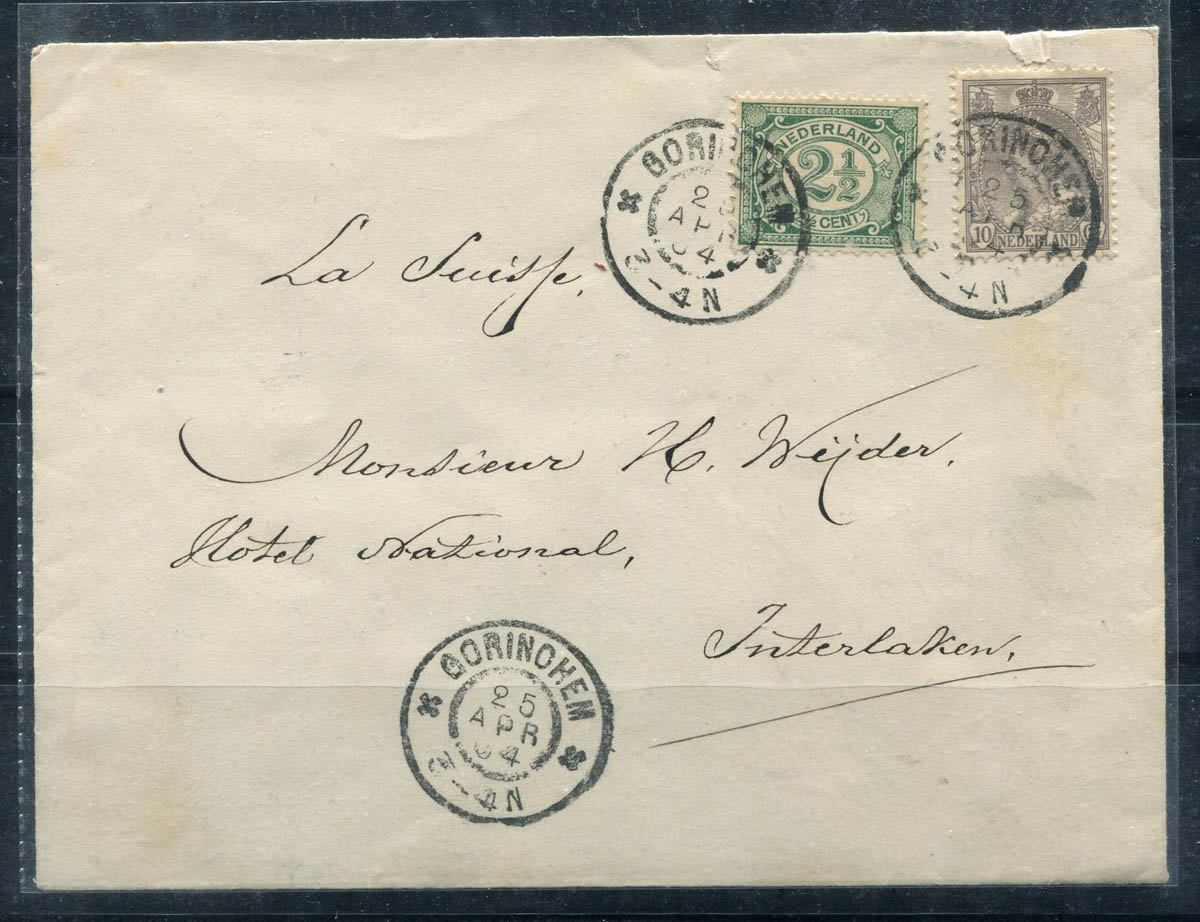 GORINCHEM
25
APR
04
3-4N
NEDERLAND
2½
CENT
GORINCHEM
25
3-4N
10
NEDERLAND
La Suisse,
Monsieur H. Weijder.
Hôtel National,
Interlaken.
GORINCHEM
25
APR
04
3-4N